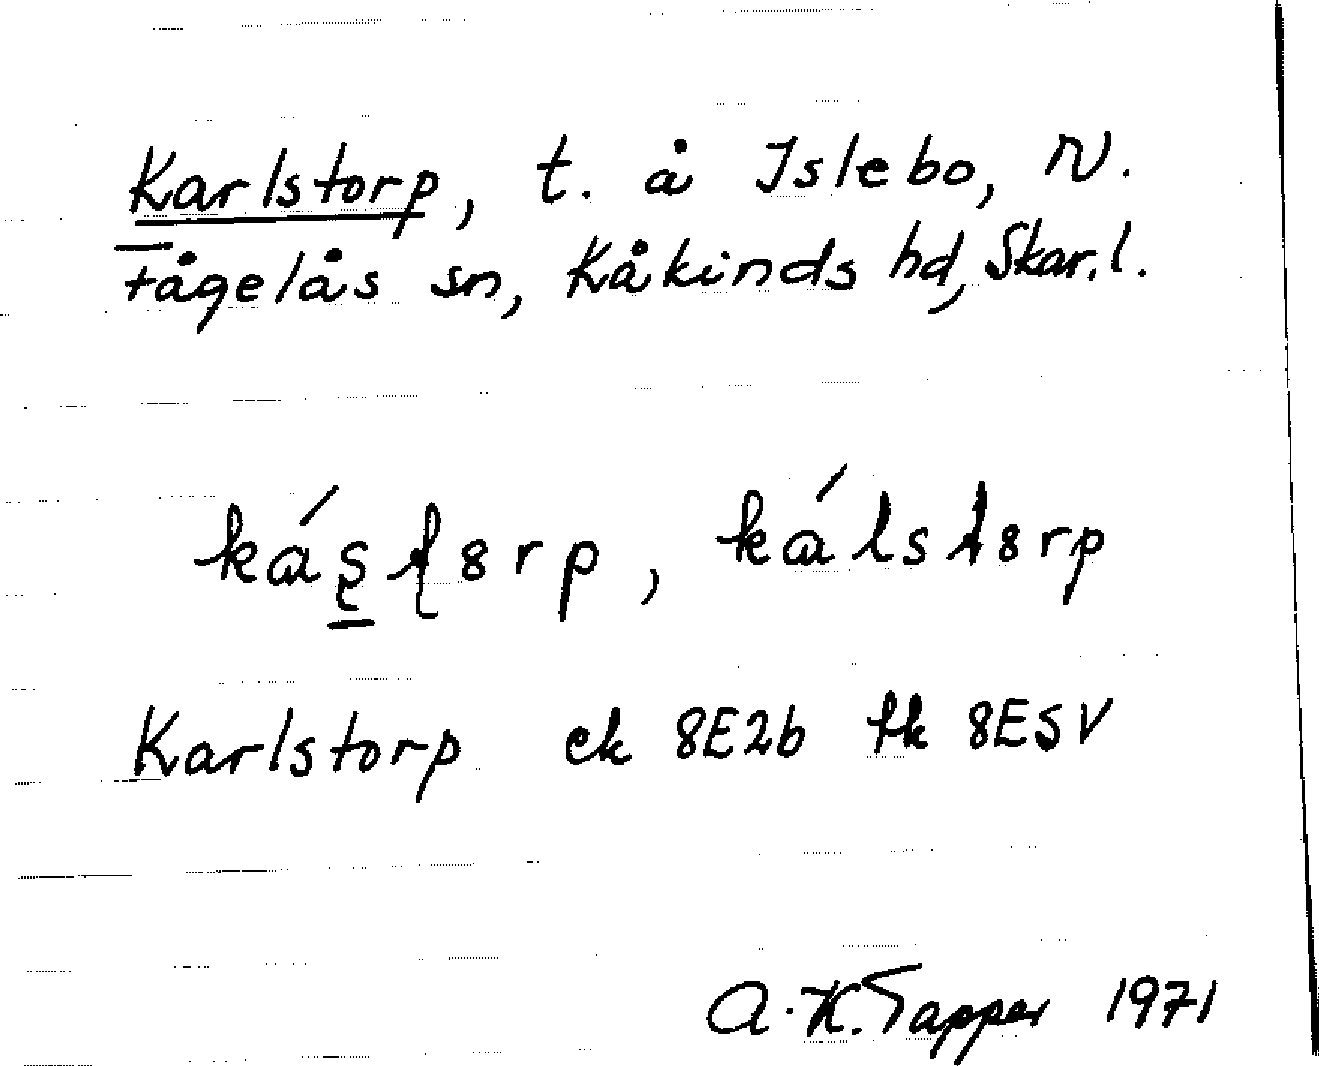 Karlstorp, t. å Islebo, N.
Fågelås sn, Kåkinds hd, Skar.l.
Karlstorp ek 8E2b tk 8ESV
A.K. Tapper 1971